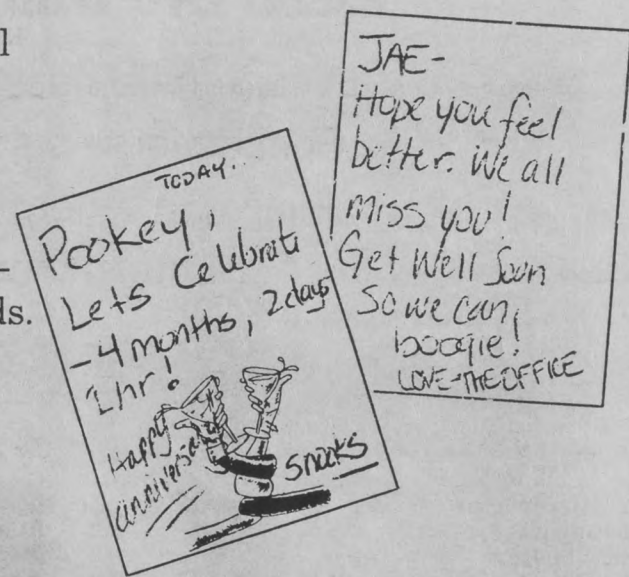 l
ds.
TODAY.
Pookey,
Lets Celebrate
-4 months, 2 days
1hr!
Happy
anniversary
snooks
JAE-
Hope you feel
better. We all
miss you!
Get Well Soon
So we can
boogie!
LOVE-THE OFFICE